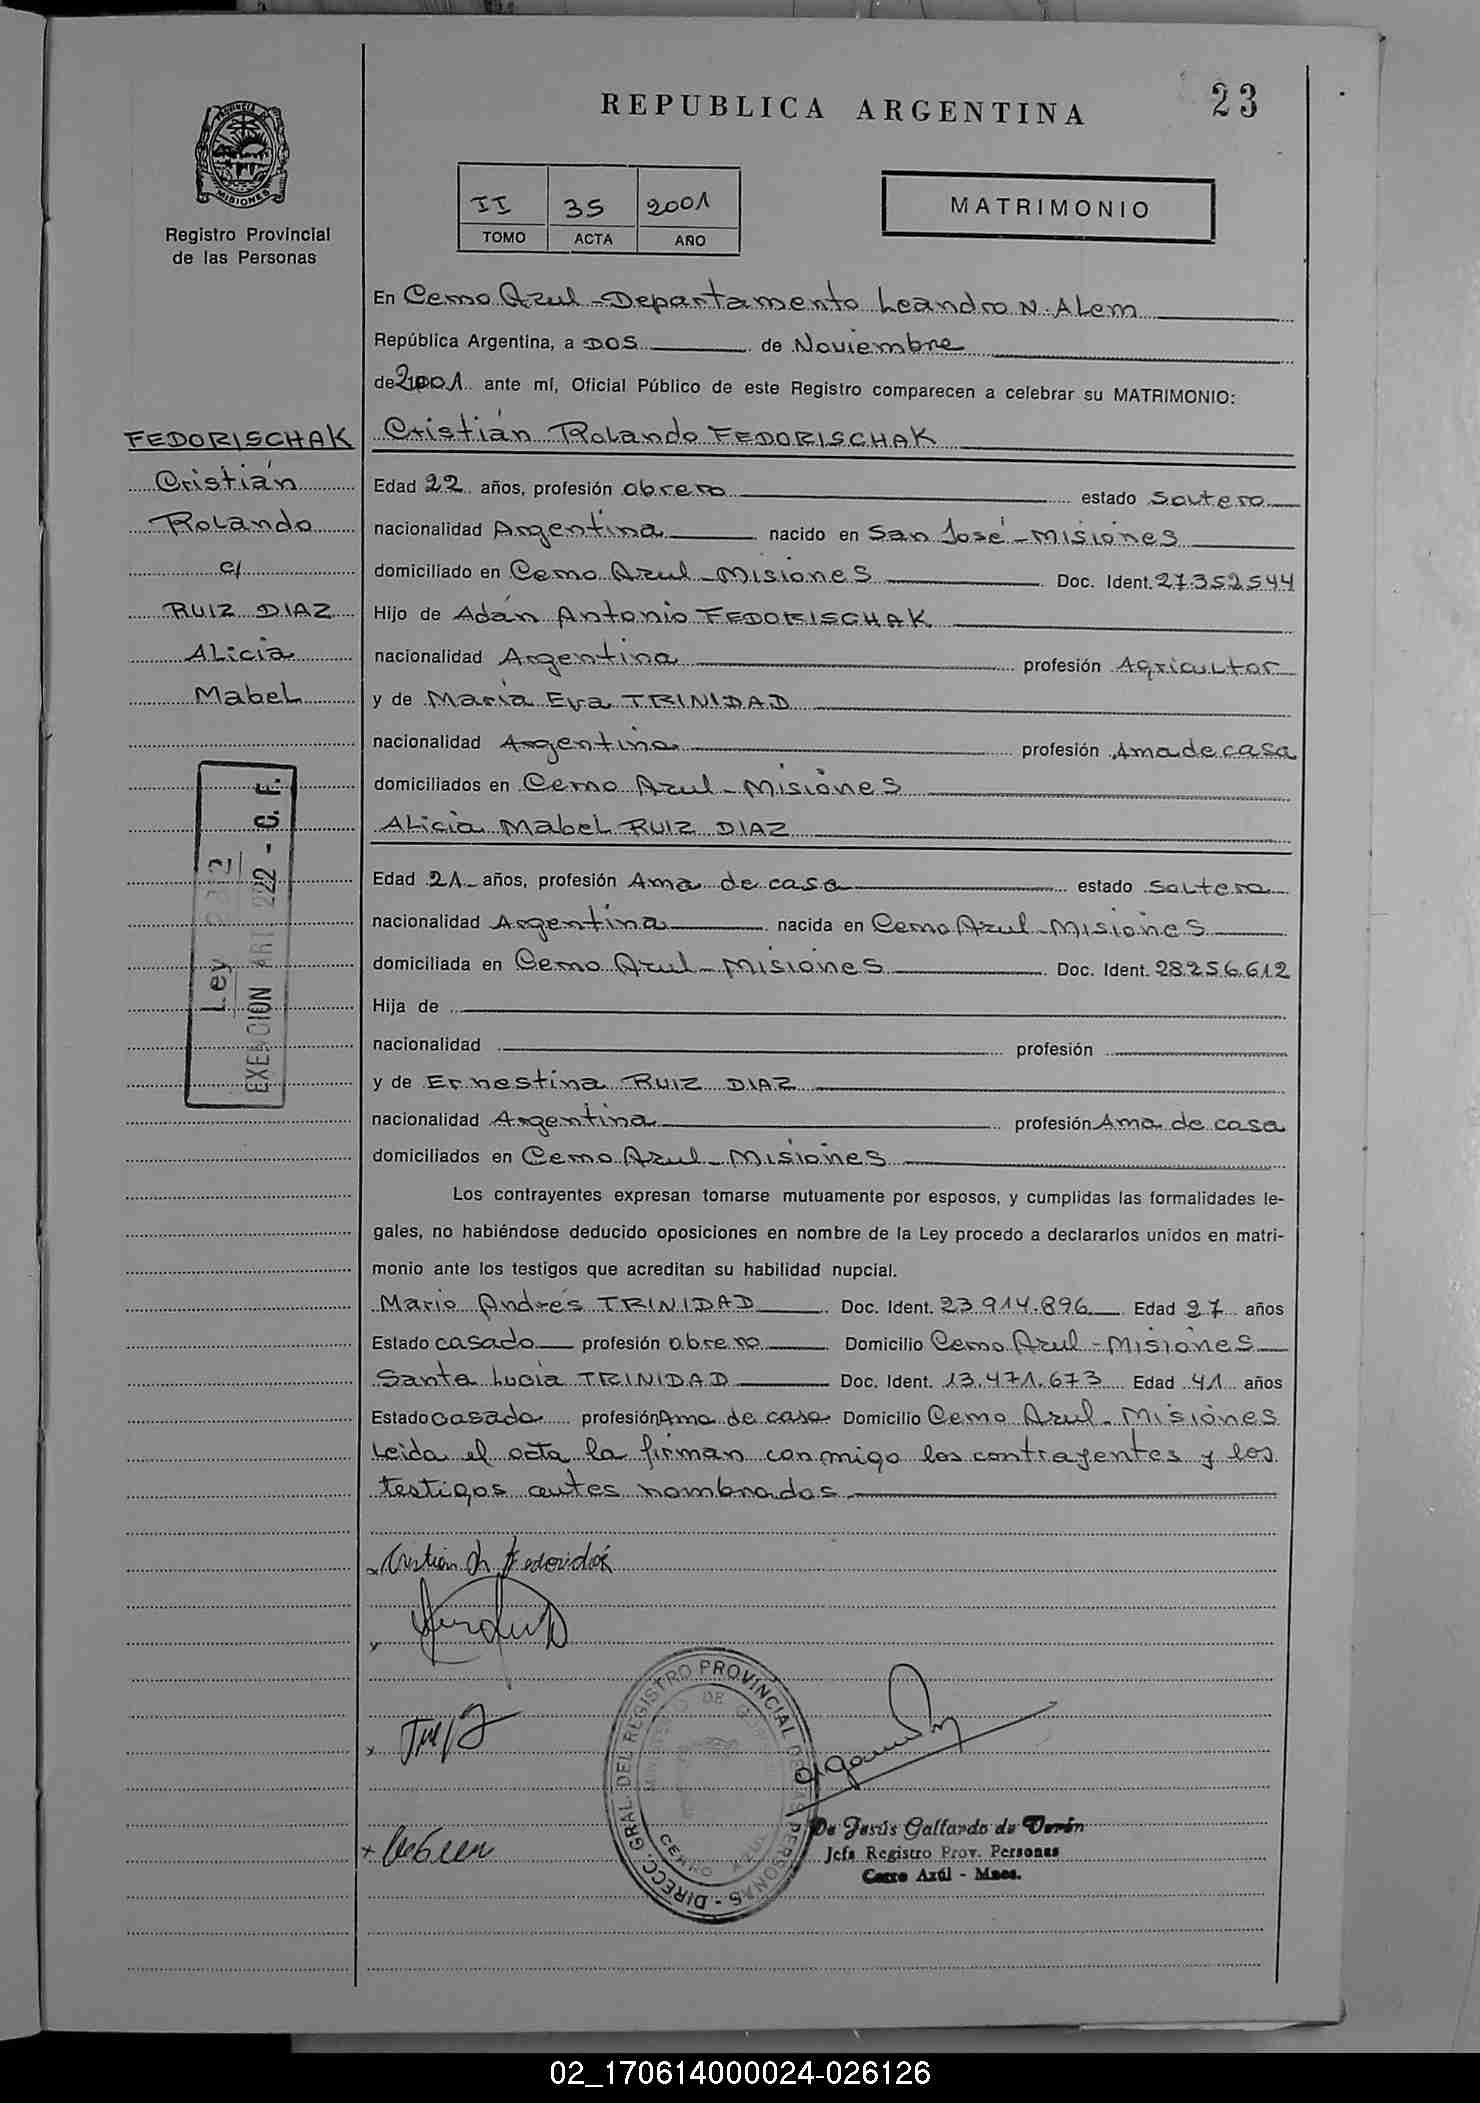 REPUBLICA ARGENTINA
23
PROVINCIA DE
MISIONES
Registro Provincial
de las Personas
II 35 2001
TOMO ACTA AÑO
MATRIMONIO
En Cerro Azul - Departamento Leandro N. Alem
República Argentina, a DOS de Noviembre
de 2001 ante mí, Oficial Público de este Registro comparecen a celebrar su MATRIMONIO:
FEDORISCHAK
Cristián
Rolando
c/
RUIZ DIAZ
Alicia
Mabel
Ley 2312
EXENCION ART 222 - C. F.
Cristián Rolando FEDORISCHAK
Edad 22 años, profesión obrero estado soltero
nacionalidad Argentina nacido en San José - Misiones
domiciliado en Cerro Azul - Misiones Doc. Ident. 27.352.544
Hijo de Adán Antonio FEDORISCHAK
nacionalidad Argentina profesión Agricultor
y de María Eva TRINIDAD
nacionalidad Argentina profesión Ama de casa
domiciliados en Cerro Azul - Misiones
Alicia Mabel RUIZ DIAZ
Edad 21 años, profesión Ama de casa estado soltera
nacionalidad Argentina nacida en Cerro Azul - Misiones
domiciliada en Cerro Azul - Misiones Doc. Ident. 28.256.612
Hija de
nacionalidad profesión
y de Ernestina RUIZ DIAZ
nacionalidad Argentina profesión Ama de casa
domiciliados en Cerro Azul - Misiones
Los contrayentes expresan tomarse mutuamente por esposos, y cumplidas las formalidades le-
gales, no habiéndose deducido oposiciones en nombre de la Ley procedo a declararlos unidos en matri-
monio ante los testigos que acreditan su habilidad nupcial.
Mario Andrés TRINIDAD Doc. Ident. 23.914.896 Edad 27 años
Estado casado profesión obrero Domicilio Cerro Azul - Misiones
Santa Lucia TRINIDAD Doc. Ident. 13.471.673 Edad 41 años
Estado casada profesión Ama de casa Domicilio Cerro Azul - Misiones
Leida el acta la firman conmigo los contrayentes y los
testigos antes nombrados
DIRECC. GRAL. DEL REGISTRO PROVINCIAL DE LAS PERSONAS -
MINISTERIO DE
CERRO AZUL
De Jesús Gallardo de Verón
Jefa Registro Prov. Personas
Cerro Azúl - Mnes.
02_170614000024-026126